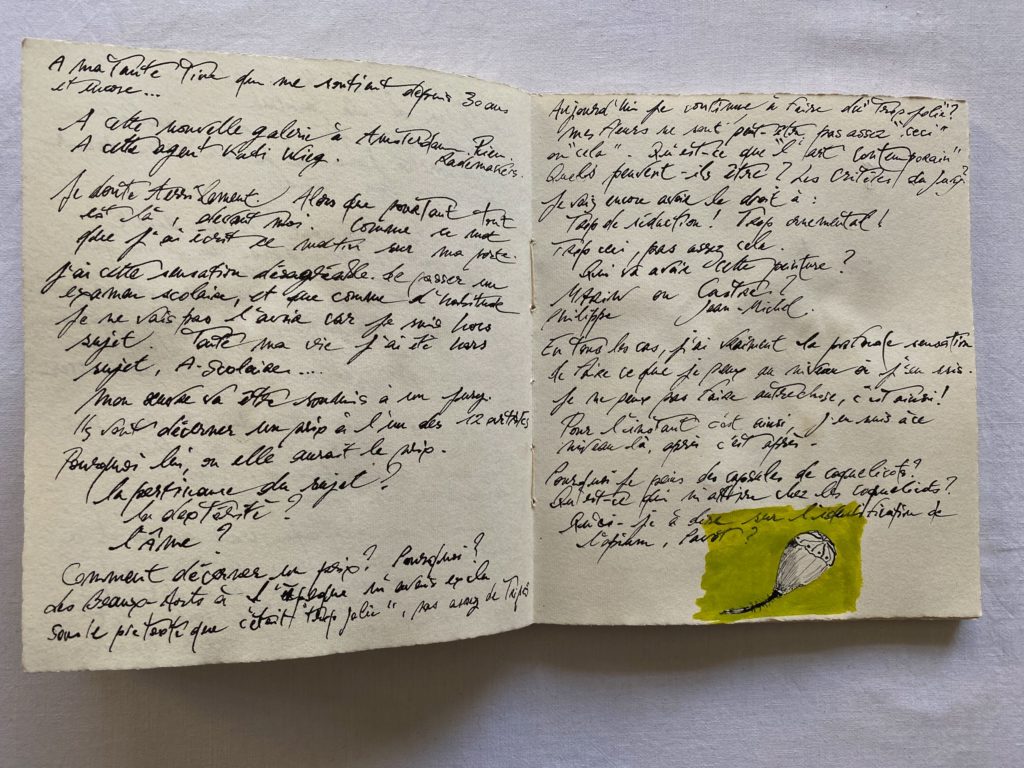 A ma Tante Tine que me soutient depuis 30 ans
et encore...
A cette nouvelle galerie à Amsterdam. Rien
Rademakers.
A cette agent Vadi Wieg.
Je doute terriblement. Alors que pourtant tout
est là, devant moi. Comme ce mot
que j'ai écrit ce matin sur ma porte.
J'ai cette sensation désagréable de passer un
examen scolaire, et que comme d'habitude
je ne vais pas l'avoir car je suis hors
sujet. Toute ma vie j'ai été hors
sujet, A-scolaire....
Mon œuvre va être soumis à un jury.
Ils vont décerner un prix à l'un des 12 artistes
Pourquoi lui, ou elle aurait le prix.
la pertinence du sujet?
la dextérité?
l'Âme?
Comment décerner un prix? Pourquoi?
Les Beaux-Arts à l'époque m'avais exclu
sous le prétexte que c'était "trop jolie", pas assez de Tripes
Aujourd'hui je continue à faire du "Trop jolie"?
mes fleurs ne sont peut-être pas assez "ceci"
ou "cela". Qu'est-ce que "l'art contemporain"
Quels peuvent-ils être? Les critères du jury?
Je vais encore avoir le droit à:
Trop de séduction! Trop ornemental!
Trop ceci, pas assez cela.
Qui va avoir cette peinture?
MARIN ou Castres?
Philippe Jean-Michel.
En tous les cas, j'ai vraiment la profonde sensation
de faire ce que je peux au niveau où j'en suis.
Je ne peux pas faire autre chose, c'est ainsi!
Pour l'instant c'est ainsi, j'en suis à ce
niveau là, après c'est après.
Pourquoi je peins des capsules de coquelicots?
Qu'est-ce qui m'attire chez les coquelicots?
Qu'ai-je à dire sur l'identification de
l'opium, Pavot?